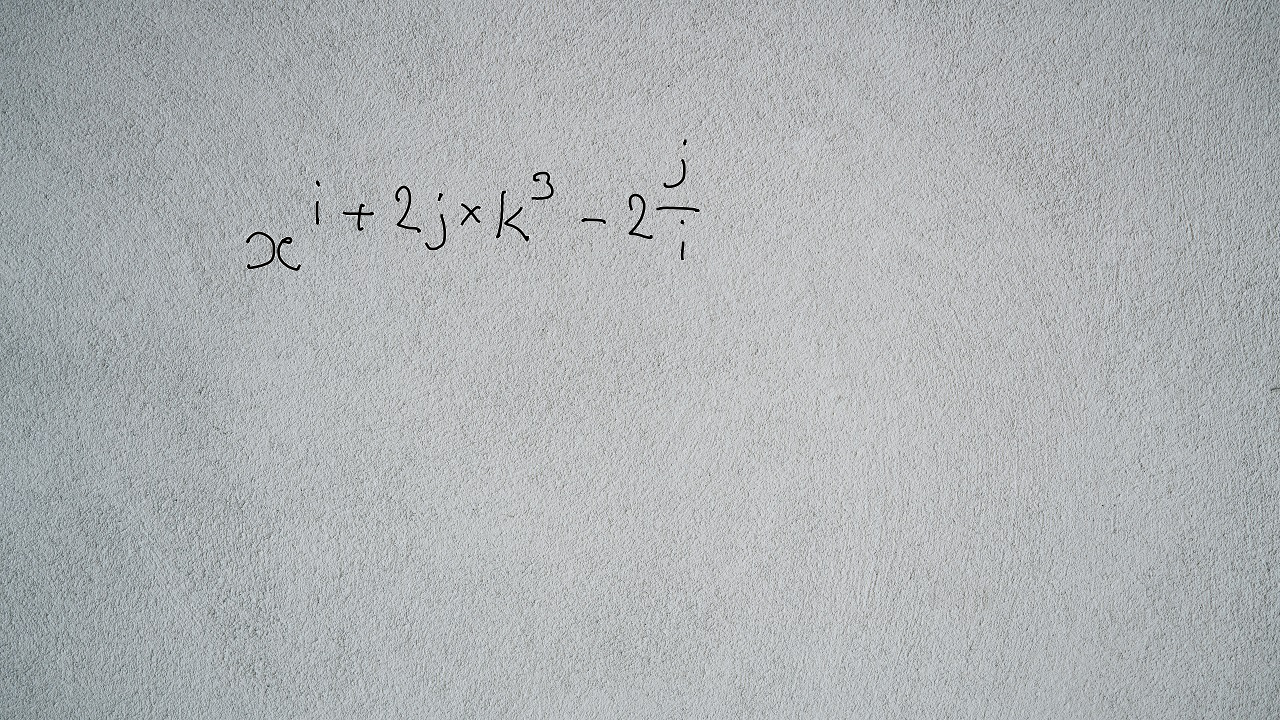 x^{i + 2j × k^{3} - 2\frac{j}{i}}